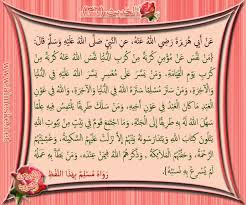 عَنْ أَبِي هُرَيْرَةَ رَضِيَ اللهُ عَنْهُ، عَنِ النَّبِيِّ صَلَّى اللهُ عَلَيْهِ وَسَلَّمَ قَالَ:
{مَنْ نَفَّسَ عَنْ مُؤْمِنٍ كُرْبَةً مِنْ كُرَبِ الدُّنْيَا نَفَّسَ اللهُ عَنْهُ كُرْبَةً مِنْ
كُرَبِ يَوْمِ الْقِيَامَةِ، وَمَنْ يَسَّرَ عَلَى مُعْسِرٍ يَسَّرَ اللهُ عَلَيْهِ فِي الدُّنْيَا
وَالآخِرَةِ، وَمَنْ سَتَرَ مُسْلِمًا سَتَرَهُ اللهُ فِي الدُّنْيَا وَالآخِرَةِ، وَاللهُ فِي عَوْنِ
الْعَبْدِ مَا كَانَ الْعَبْدُ فِي عَوْنِ أَخِيهِ، وَمَنْ سَلَكَ طَرِيقًا يَلْتَمِسُ فِيهِ عِلْمًا
سَهَّلَ اللهُ لَهُ بِهِ طَرِيقًا إِلَى الْجَنَّةِ، وَمَا اجْتَمَعَ قَوْمٌ فِي بَيْتٍ مِنْ بُيُوتِ اللهِ
يَتْلُونَ كِتَابَ اللهِ وَيَتَدَارَسُونَهُ بَيْنَهُمْ إِلاَّ نَزَلَتْ عَلَيْهِمُ السَّكِينَةُ، وَغَشِيَتْهُمُ
الرَّحْمَةُ، وَحَفَّتْهُمُ الْمَلاَئِكَةُ، وَذَكَرَهُمُ اللهُ فِيمَنْ عِنْدَهُ، وَمَنْ بَطَّأَ بِهِ عَمَلُهُ
لَمْ يُسْرِعْ بِهِ نَسَبُهُ}
رَوَاهُ مُسْلِمٌ بِهَذَا اللَّفْظِ